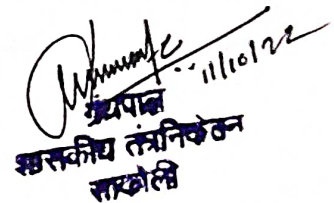 11/10/22
ग्रंथपाल
शासकीय तंत्रनिकेतन
साकोली